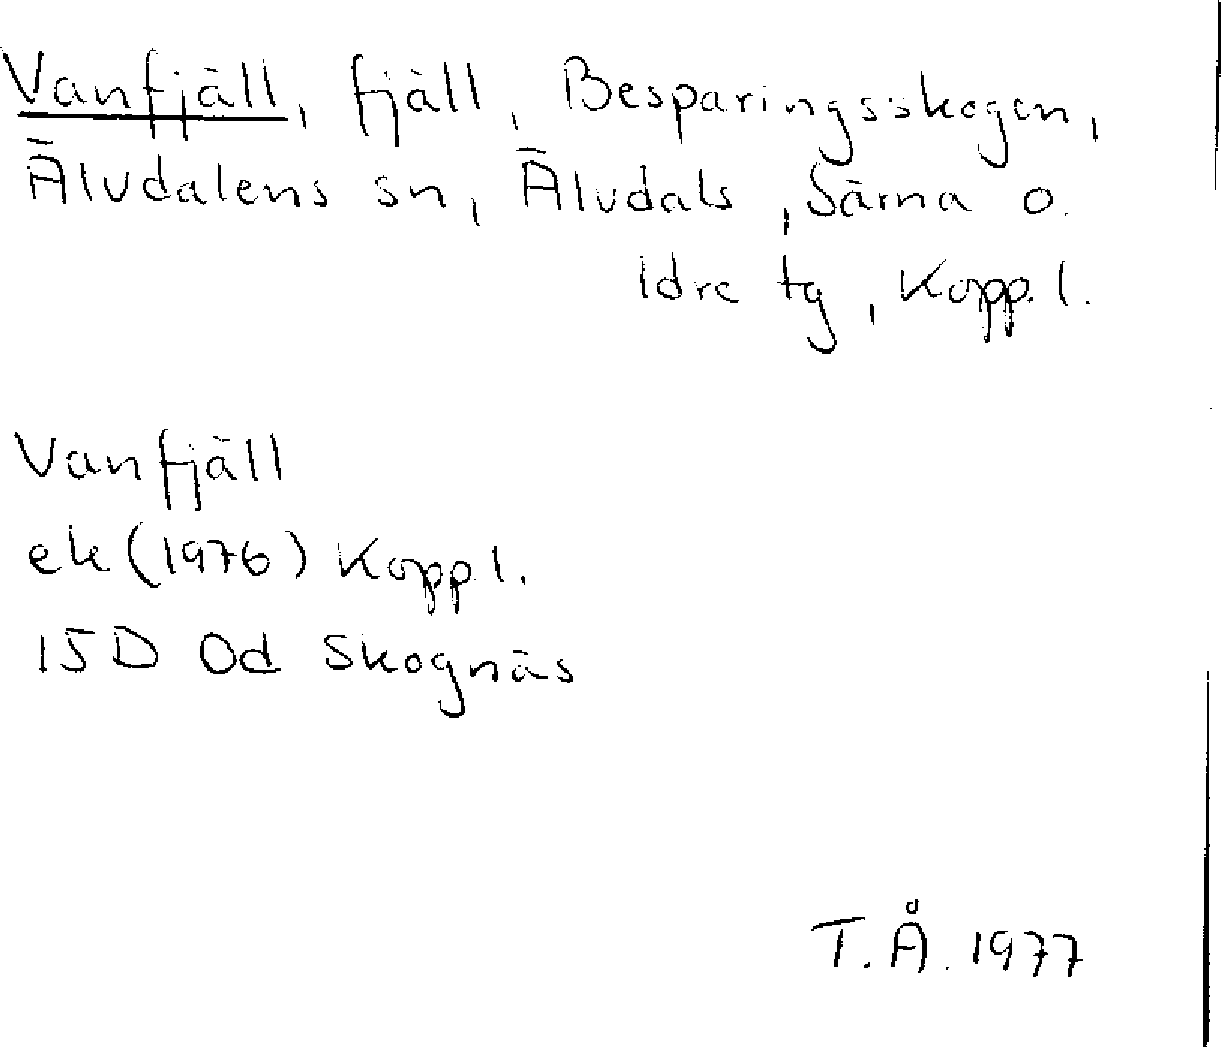 Vanfjäll, fjäll, Besparingsskogen,
Älvdalens sn, Älvdals, Särna o.
Idre tg, Kopp. l.
Vanfjäll
ek (1976) Kopp l.
15D 0d Skognäs
T. Å. 1977